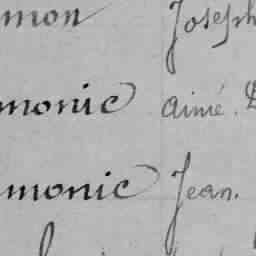 mon Joseph
monie Aimé.
monie Jean.